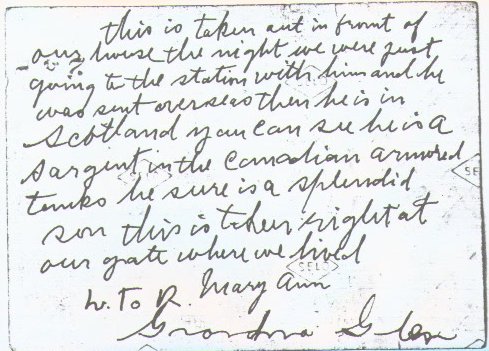 this is taken out in front of
our house the night we were just
going to the station with him and he
was sent overseas then he is in
Scotland you can see he is a
Sargent in the Canadian armored
tanks he sure is a splendid
son this is taken right at
our gate where we lived
L. To R. Mary Ann
Grandma